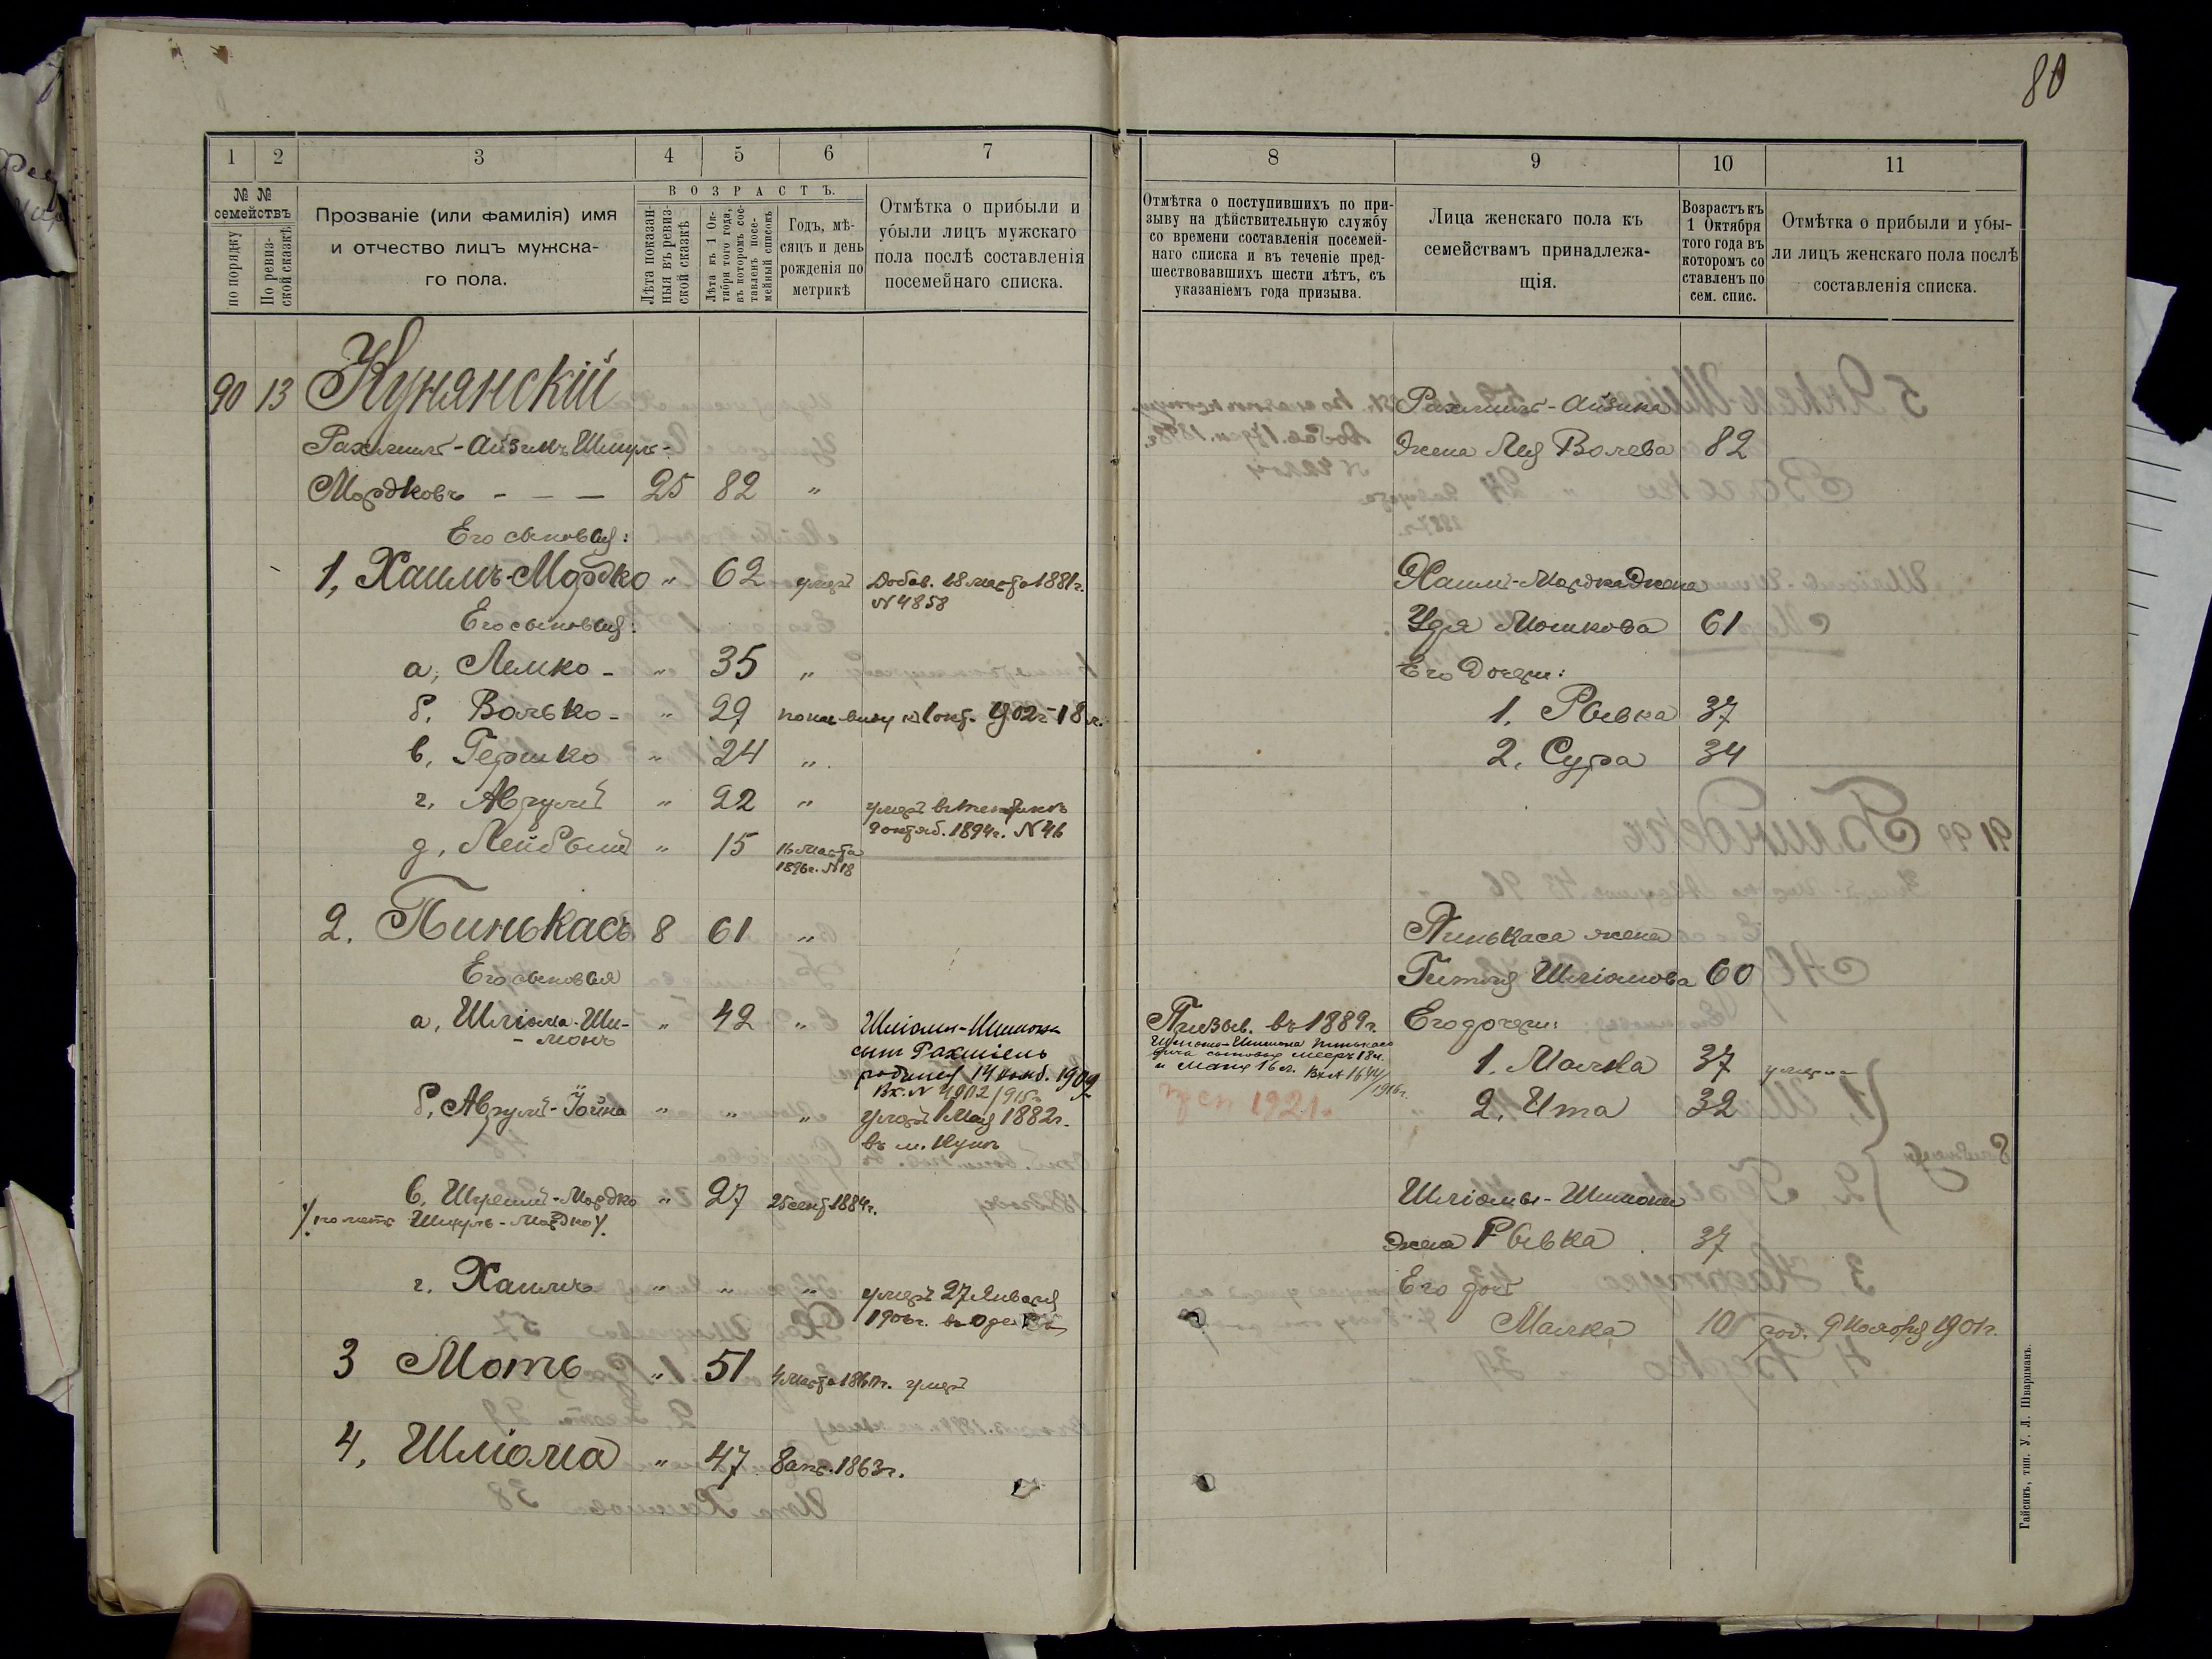 80
1 2 3 4 5 6 7
№ №
семействъ
по порядку
По ревиз-
ской сказкѣ
Прозваніе (или фамилія) имя
и отчество лицъ мужска-
го пола.
ВОЗРАСТЪ.
Лѣта показан-
ныя въ ревиз-
ской сказкѣ
Лѣта къ 1 Ок-
тября того года,
въ которомъ сос-
тавленъ посе-
мейный списокъ
Годъ, мѣ-
сяцъ и день
рожденія по
метрикѣ
Отмѣтка о прибыли и
убыли лицъ мужскаго
пола послѣ составленія
посемейнаго списка.
90 13 Кунянскій
Рахмиль-Айзикъ Шмуль-
Мордковъ - - - 25 82 "
Его сыновья:
1, Хаимъ-Мордко " 62 умеръ Добав. 18 марта 1881г.
№ 4858
Его сыновья:
а, Лемко - " 35 "
б, Волько - " 29 по нар. виду к 1 окт. 902г. 18 л.
в, Гершко " 24 "
г, Аврумъ " 22 " умеръ
9 октяб. 1894г. № 46
д, Лейбышъ " 15 16 марта
1896г. №18
2. Пинькасъ 8 61 "
Его сыновья
а, Шліома-Ши- " 42 " Шліомы-Шимона
- монъ сынъ Рахміель
родился 14 нояб. 1909г.
Вх. № 4902/915г.
б, Аврумъ-Іойна " " " умеръ 1 Мая 1882г.
въ м. Куна
в, Шулимъ-Мордко " 27 25 сент 1884г.
/по метр. Шмуль-Мордко/.
г. Хаимъ " " " умеръ 27 Января
1906г. въ Одессѣ
3 Моть " 51 4 Марта 1861г. умеръ
4, Шліома " 47 8 апр. 1863г.
8 9 10 11
Отмѣтка о поступившихъ по при-
зыву на дѣйствительную службу
со времени составленія посемей-
наго списка и въ теченіе пред-
шествовавшихъ шести лѣтъ, съ
указаніемъ года призыва.
Лица женскаго пола къ
семействамъ принадлежа-
щія.
Возрастъ къ
1 Октября
того года въ
которомъ со
ставленъ по
сем. спис.
Отмѣтка о прибыли и убы-
ли лицъ женскаго пола послѣ
составленія списка.
Рахмиль-Айзика
жена Лея Волева 82
Хаимъ-Мордка жена
Удя Мошкова 61
Его дочери:
1. Рывка 37
2. Сура 34
Пинькаса жена
Гитля Шліомова 60
Призыв. въ 1889г. Его дочери:
Шліомо-Шимона Пинькасо
вича сыновья Мееръ 18 л.
и 16 л. Вх. № 1644/1916г.
1. Малка 37 умерла
1921г.
2. Ита 32
Шліомы-Шимона
жена Рывка 37
Его дочь
Малка 10 род. 9 Ноября 1901г.
Гайсинъ, тип. У. Л. Шварцманъ.